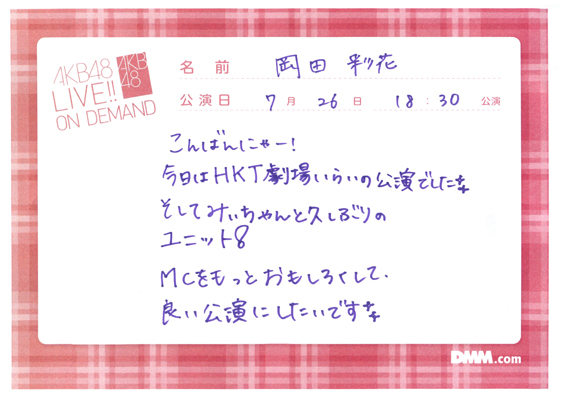 AKB48
LIVE!!
ON DEMAND
AKB
48
名前 岡田 彩花
公演日 7月 26日 18:30 公演
こんばんにゃー!
今日はHKT劇場いらいの公演でしたな
そしてみぃちゃんと久しぶりの
ユニット8
MCをもっとおもしろくして、
良い公演にしたいですな
DMM.com